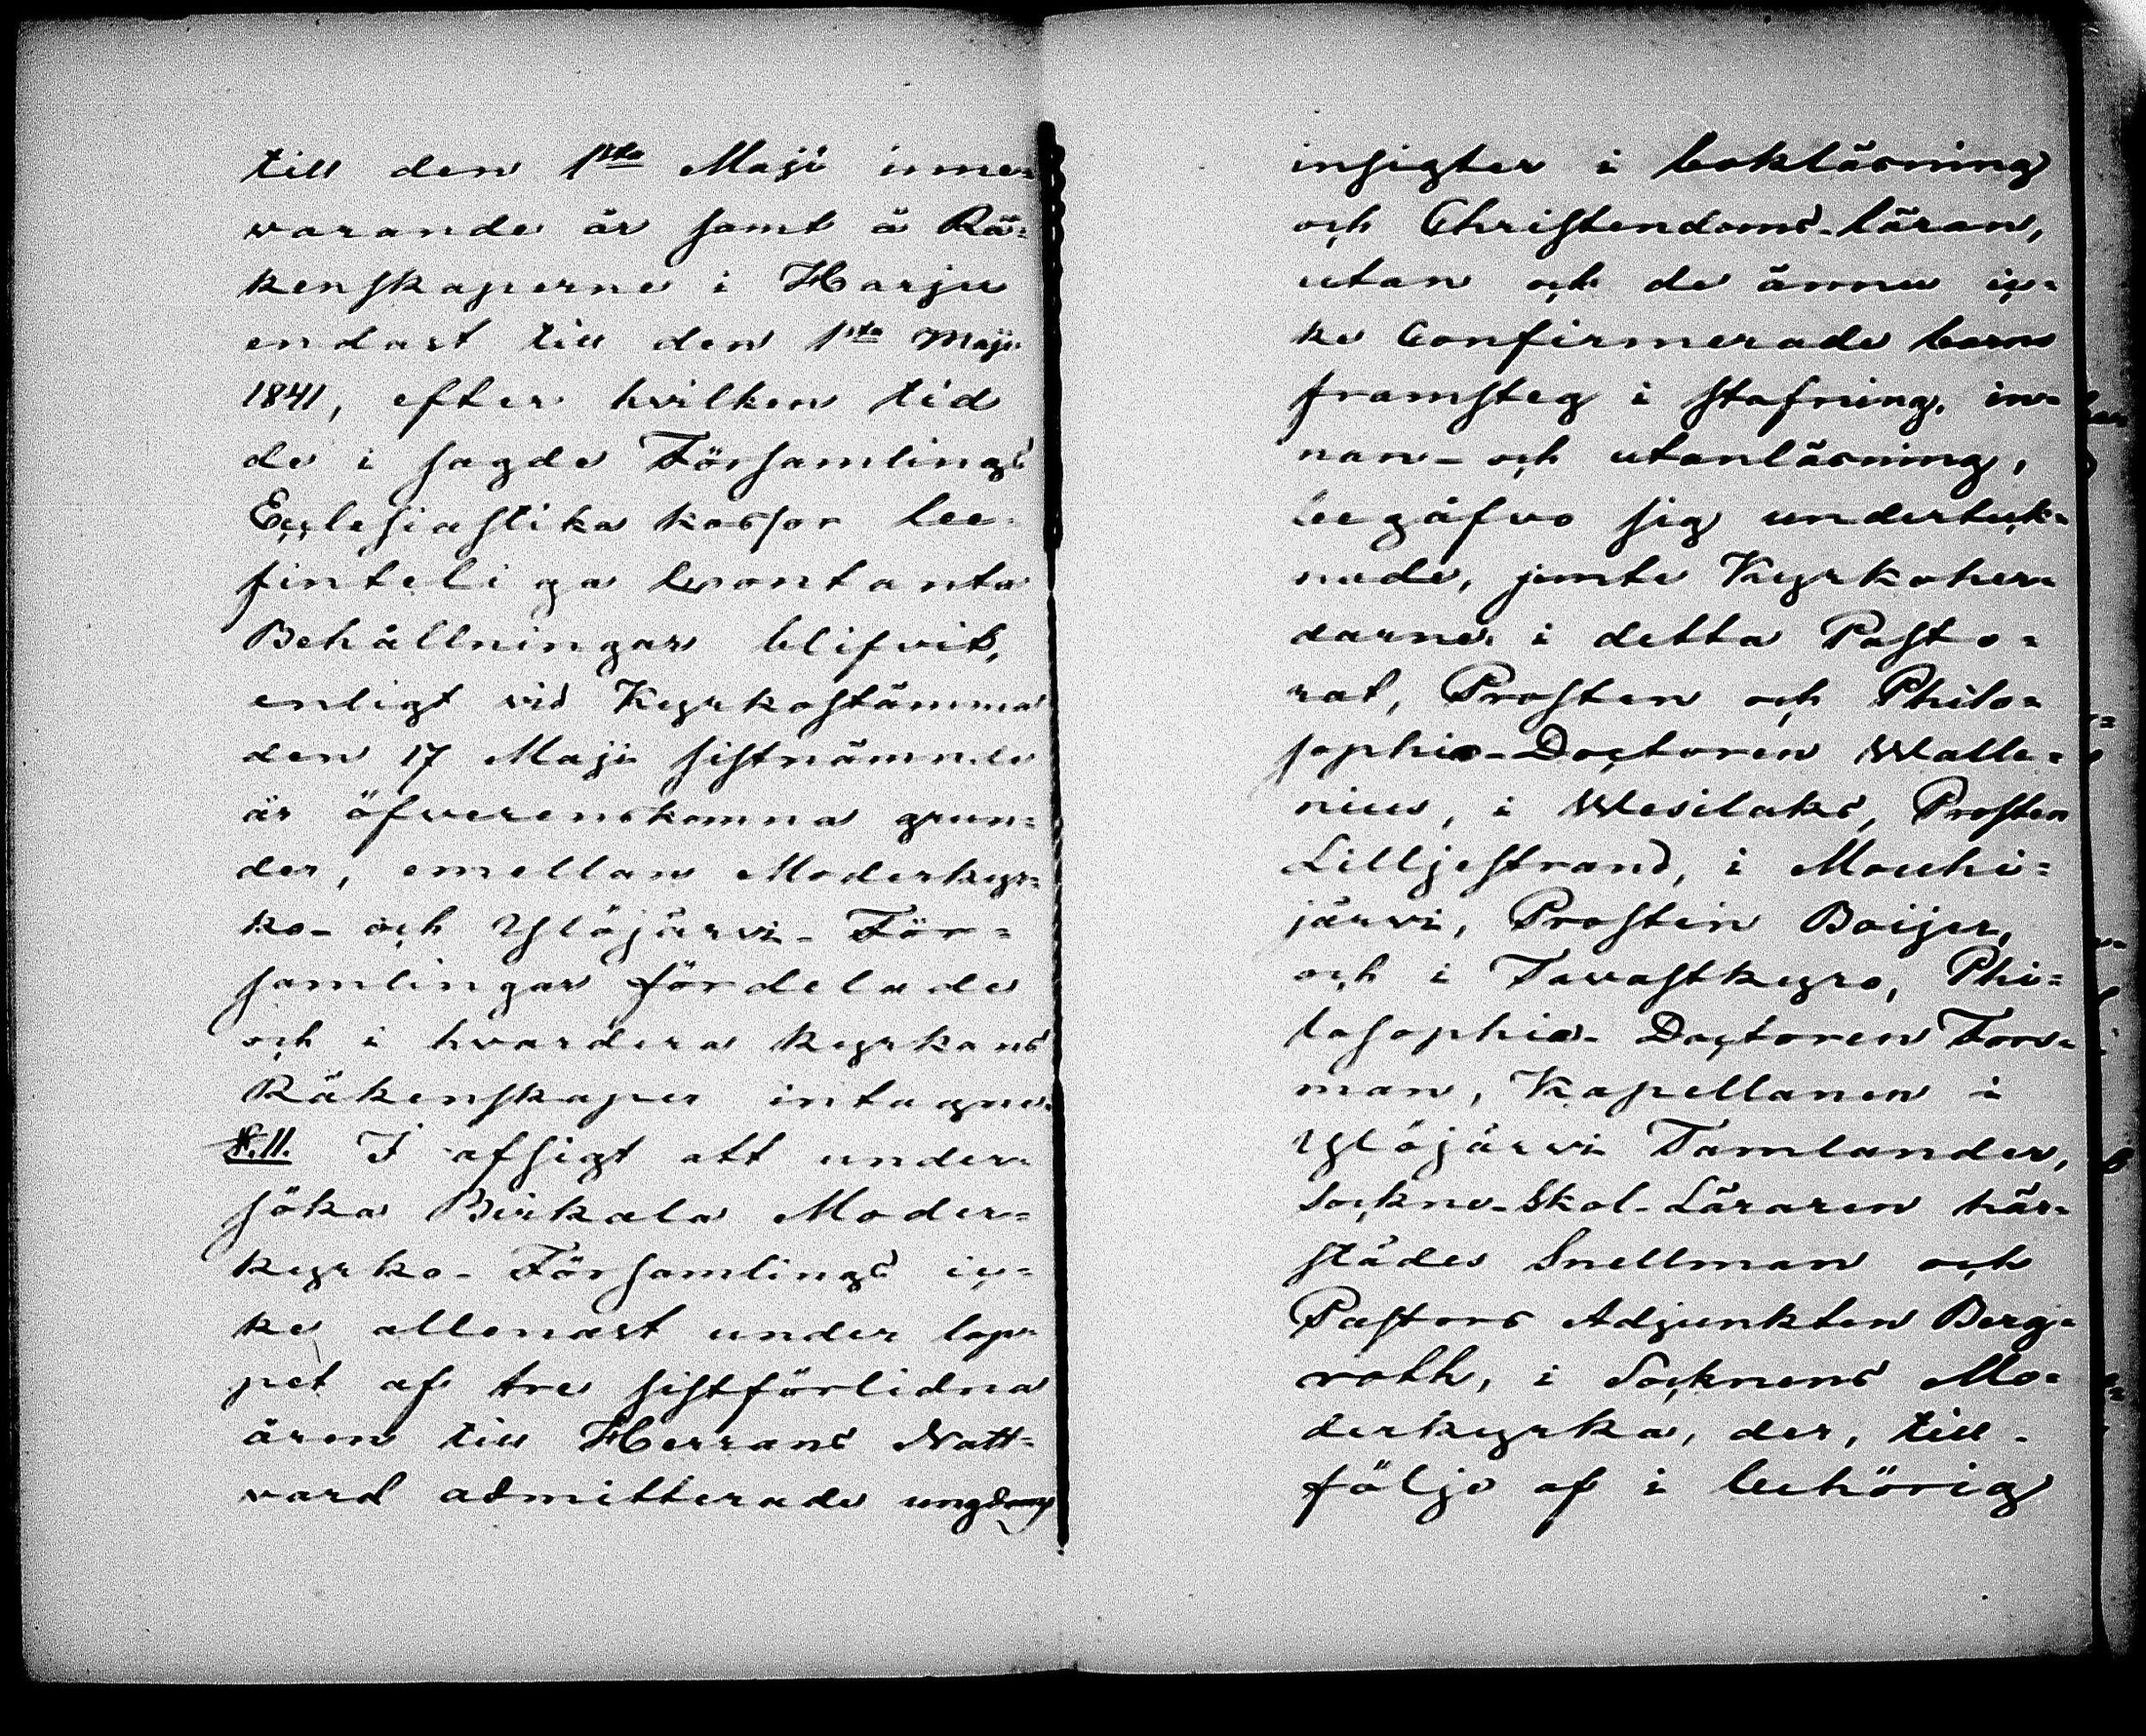 till den 1sta Maji inne-
varande år samt å Rä-
kenskaperne i Harju
endast till den 1sta Maji
1841, efter hvilken tid
de i sagde Församlings
Ecclesiastika kassor be-
finteliga kontanta
Behållningar blifvit,
enligt vid Kyrkostämma
den 17 Maji sistnämnde
år öfverenskomna grun=
der, emellan Moderkyr=
ko- och Ylöjärvi-För=
samlingar fördelade
och i hvardera kyrkans
Räkenskaper intagne.
§.11. I afsigt att under-
söka Birkala Moder=
kyrko-Församlings ic=
ke allenast under lop-
pet af tre sistförlidna
åren till Herrans Natt=
vard admitterade ungdoms
insigter i bokläsning
och Christendoms-läran,
utan och de ännu ic=
ke Confirmerade barns
framsteg i stafning, in=
nan- och utanläsning,
begåfvo sig underteck=
nade, jemte Kyrkoher=
darne i detta Pasto=
rat, Prosten och Philo=
sophie-Doctoren Walle=
nius, i Wesilaks, Prosten
Lilljestrand, i Mouhi=
järvi, Prosten Boijer,
och i Tavastkyro, Phi=
losophie-Doctoren Fors=
man, Kapellanen i
Ylöjärvi Tamlander,
Sockne-Skol-Läraren här=
städes Snellman och
Pastors Adjunkten Berg=
roth, i Socknens Mo=
derkyrka, der, till-
följe af i behörig